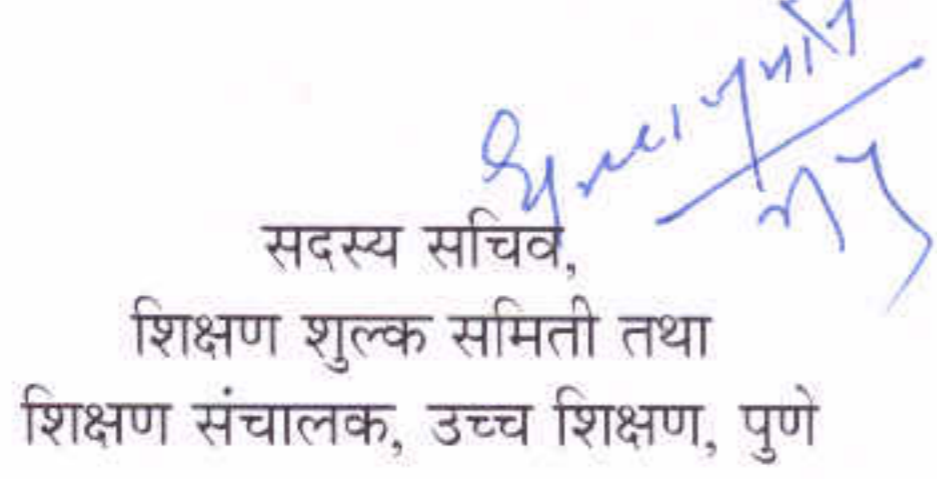 सदस्य सचिव,
शिक्षण शुल्क समिती तथा
शिक्षण संचालक, उच्च शिक्षण, पुणे